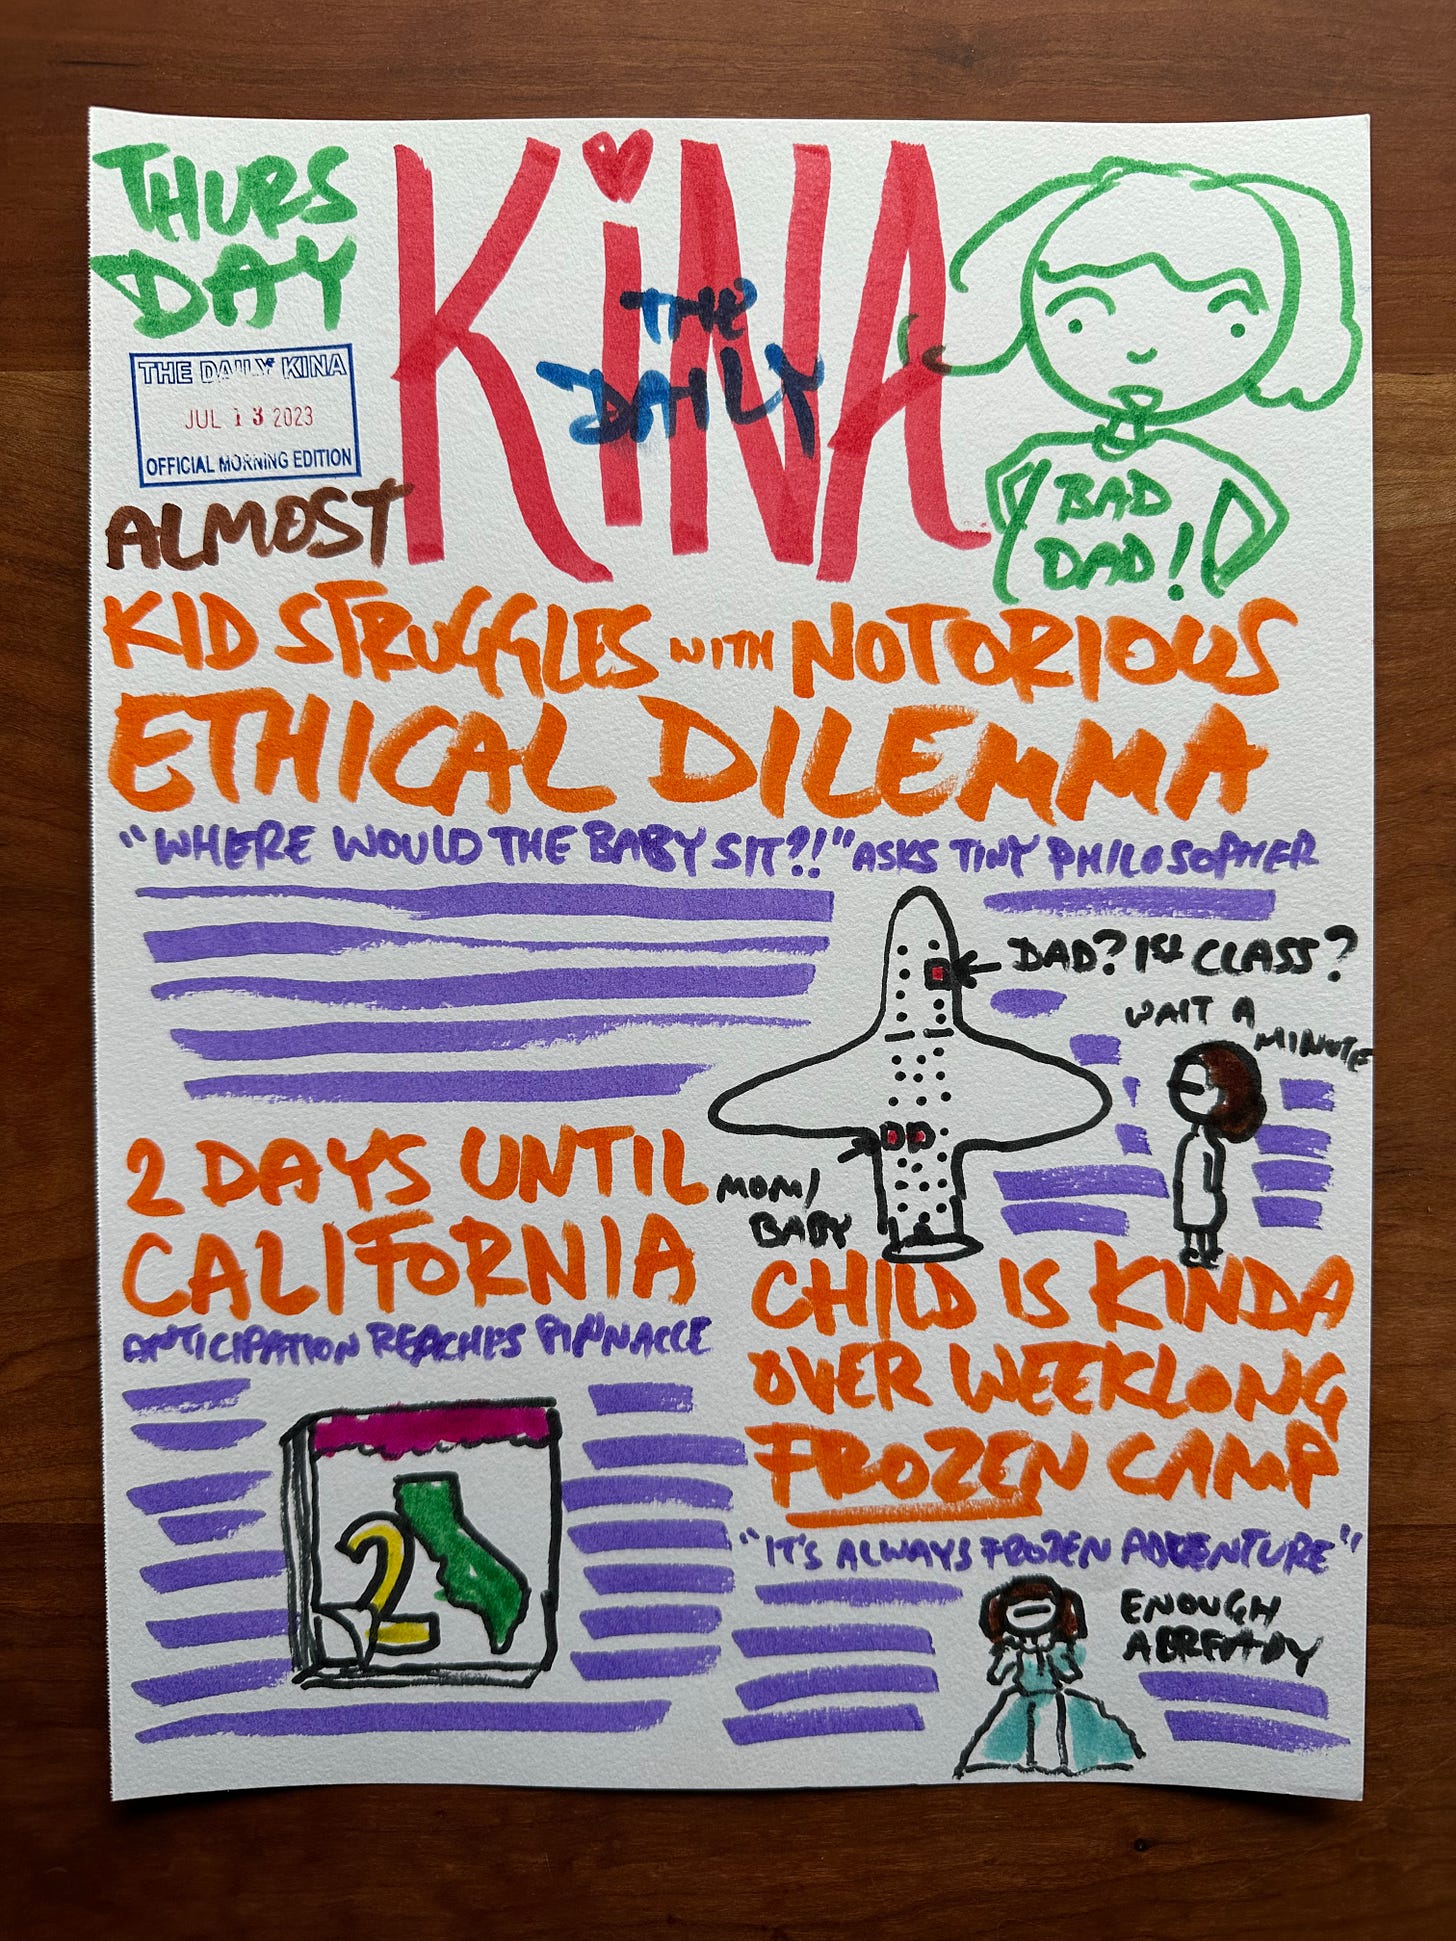 THURS
DAY
THE DAILY KINA
JUL 13 2023
OFFICIAL MORNING EDITION
KiNA
THE
DAILY
BAD
DAD!
ALMOST
KID STRUGGLES WITH NOTORIOUS
ETHICAL DILEMMA
"WHERE WOULD THE BABY SIT?!" ASKS TINY PHILOSOPHER
DAD? 1St CLASS?
WAIT A
MINUTE
MOM/
BABY
2 DAYS UNTIL
CALIFORNIA
ANTICIPATION REACHES PINNACLE
2
CHILD IS KINDA
OVER WEEKLONG
FROZEN CAMP
"IT'S ALWAYS FROZEN ADVENTURE"
ENOUGH
ALREADY